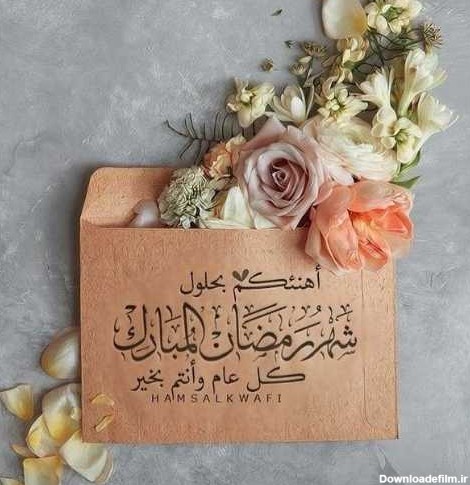 أهنئكم بحلول
شهر رمضان المبارك
كل عام وأنتم بخير
HAMSALKWAFI
Downloadefilm.ir